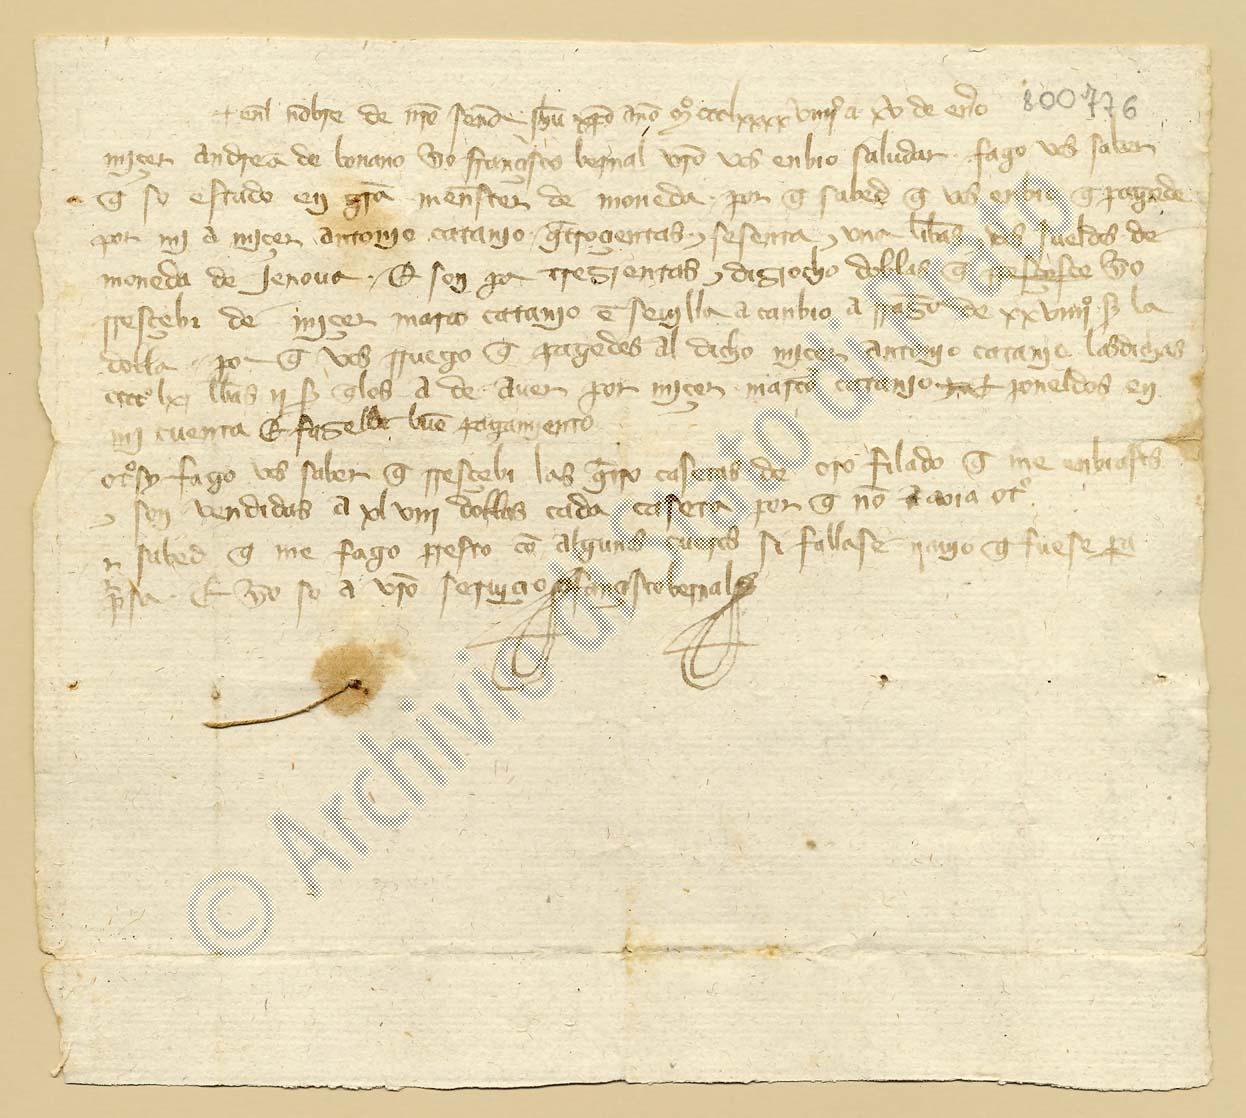 + enl nõbre de nr̃o señor jhũ xp̃o año mº ccclxxxxviiijº a xv de enº̃ro 800776
miçer andrea de bonano yo françisco bernal vr̃o vos enbio saludar fago vos saber
q̃ so estado en grã menester de moneda por q̃ sabed q̃ vos enbio q̃ pagede
por mi a miçer antonio catanio q̃trogentas y sesenta y una libras dos sueldos de
moneda de Jenova E son por tresientas y disiocho doblas q̃ yo
rresçebi de miçer marco catanio ẽ sevilla a canbio a rrasõ de xxviiijº ss la
dobla por q̃ vos rruego q̃ pagedes al dicho miçer antonio catanio las dichas
ccccº lxj lbas ij ss q̃ los a de aver por miçer marco catanio poneldos en
mi cuenta E fagelde buẽ pagamiento
otº sy fago vos saber q̃ rresçebi las q̃tro casetas de oro filado q̃ me enbiastes
y son vendidas a xlviij doblas cada caseta por q̃ nõ avia otº
y sabed q̃ me fago presto cõ algunos cueros si fallase navio q̃ fuese pa
pisa E yo so a vr̃o serviçio françisco bernal
© Archivio di Stato di Prato